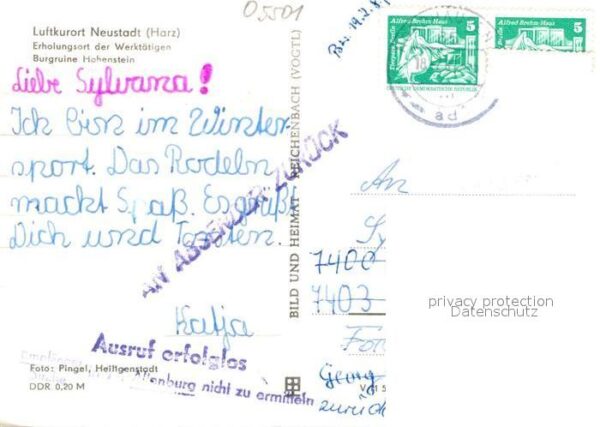 05501
Luftkurort Neustadt (Harz)
Erholungsort der Werktätigen
Burgruine Hohenstein
Liebe Sylvana!
Ich bin im Winter
sport. Das Rodeln
mackt Spaß. Es grüßt
Dich und Torsten.
Katja
AN ABSENDER ZURÜCK
Ausruf erfolglos
Altenburg nicht zu ermitteln
Foto: Pingel, Heiligenstadt
DDR 0,20 M
BILD UND HEIMAT REICHENBACH (VOGTL)
19.2.8
Alfred Brehm-Haus 5
Tierpark Berlin
DEUTSCHE DEMOKRATISCHE REPUBLIK
Alfred Brehm-Haus 5
18
ad
An
Sy
7400
7403
Georg
zurück
V 11 5
privacy protection
Datenschutz